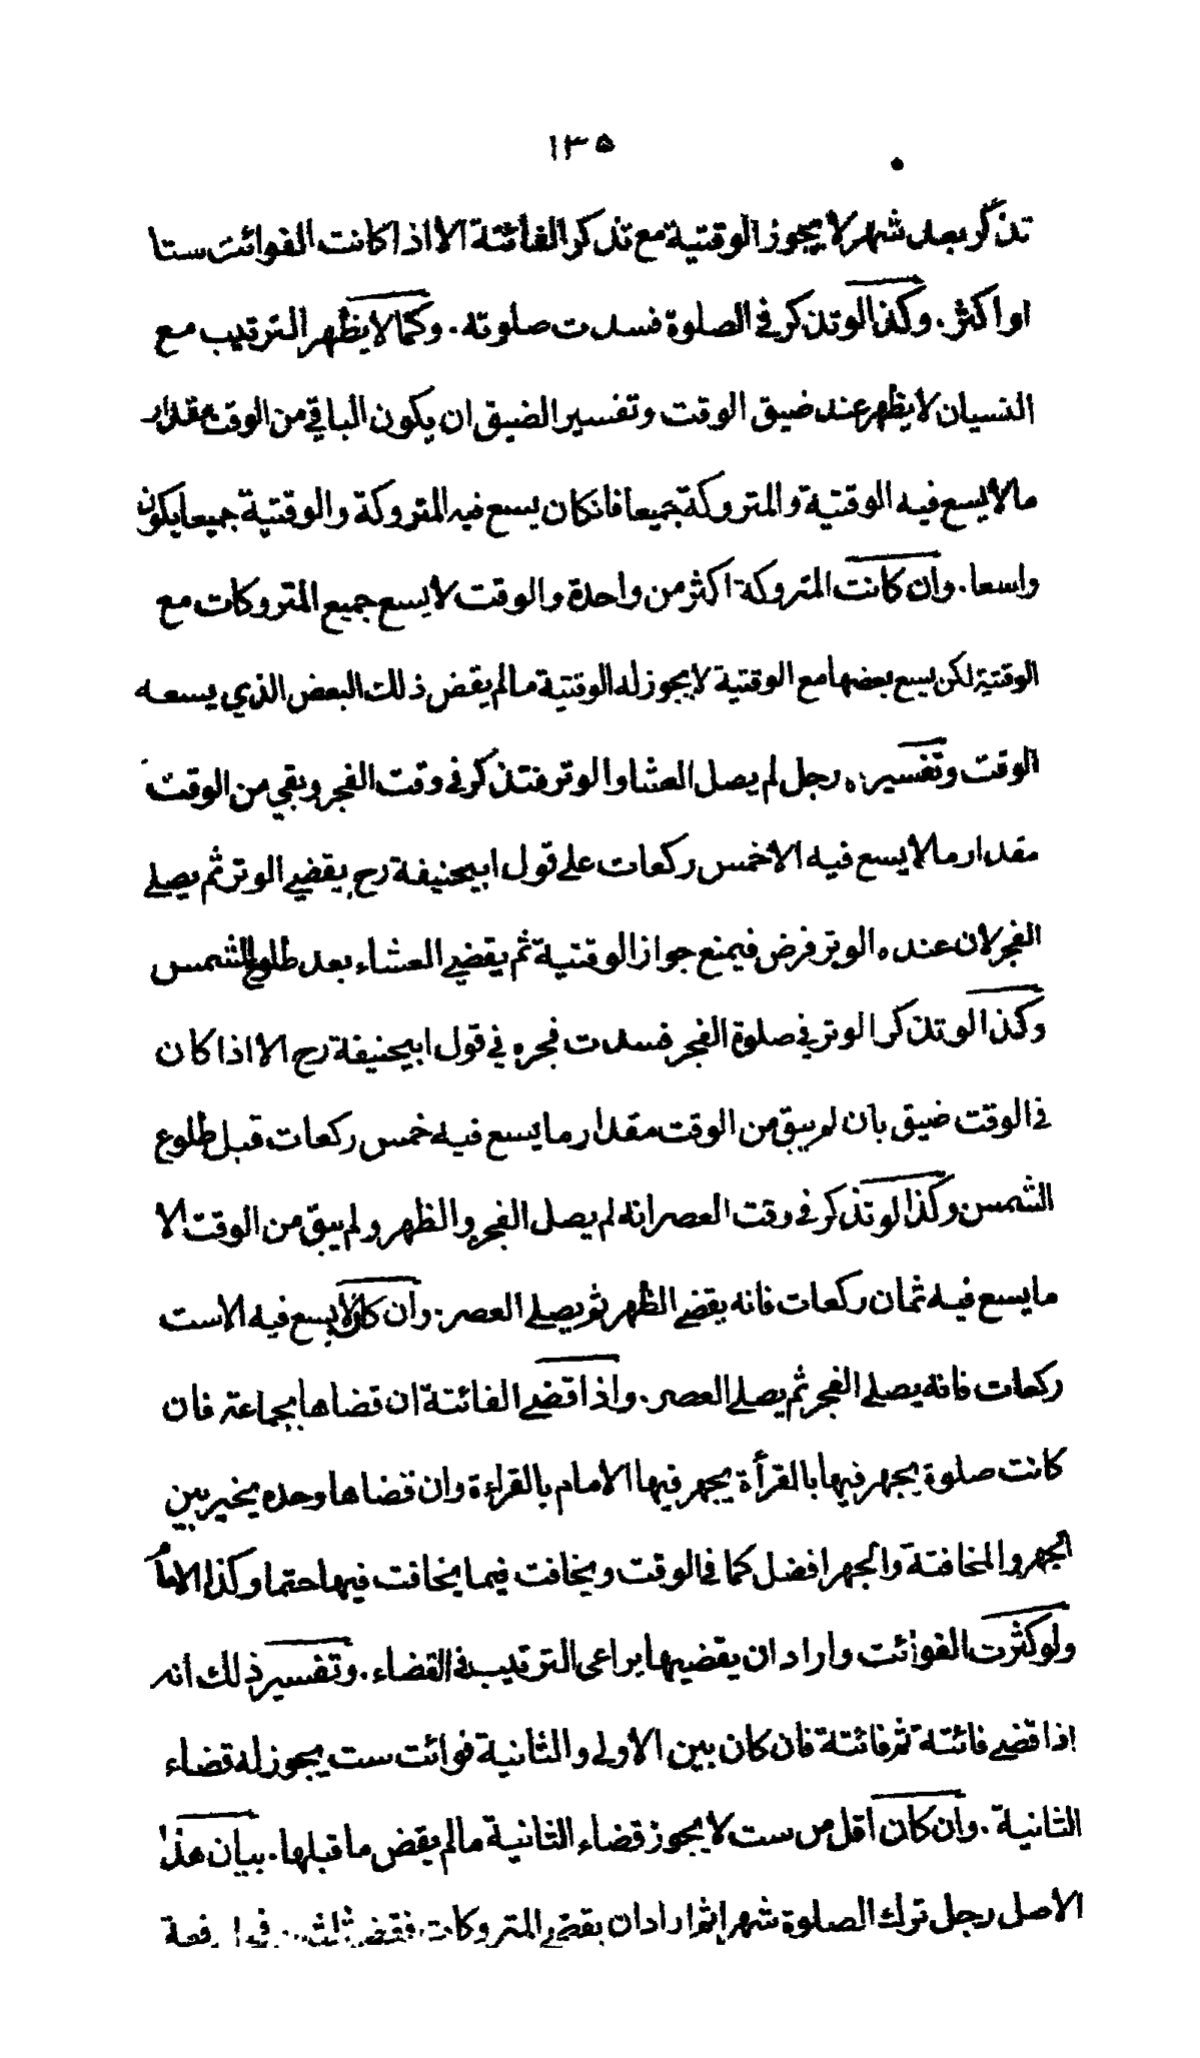 ١٣٥
تذكر بعد شهر لا يجوز الوقتية مع تذكر الفائتة الا اذا كانت الفوائت ستا
او اكثر. وكذا لو تذكر في الصلوة فسدت صلوته. وكما لا يظهر الترتيب مع
النسيان لا يظهر عند ضيق الوقت وتفسير الضيق ان يكون الباقي من الوقت مقدار
ما لا يسع فيه الوقتية والمتروكة جميعا فانكان يسع فيه المتروكة والوقتية جميعا يكون
واسعا. وان كانت المتروكة اكثر من واحدة والوقت لا يسع جميع المتروكات مع
الوقتية لكن يسع بعضها مع الوقتية لا يجوز له الوقتية ما لم يقض ذلك البعض الذي يسعه
الوقت وتفسيره رجل لم يصل العشا والوتر فتذكر في وقت الفجر وبقي من الوقت
مقدار ما لا يسع فيه الا خمس ركعات على قول ابيحنيفة رح يقضي الوتر ثم يصلي
الفجر لان عنده الوتر فرض فيمنع جواز الوقتية ثم يقضي العشاء بعد طلوع الشمس
وكذا لو تذكر الوتر في صلوة الفجر فسدت فجره في قول ابيحنيفة رح الا اذا كان
في الوقت ضيق بان لم يبق من الوقت مقدار ما يسع فيه خمس ركعات قبل طلوع
الشمس وكذا لو تذكر في وقت العصر انه لم يصل الفجر والظهر ولم يبق من الوقت الا
ما يسع فيه ثمان ركعات فانه يقضي الظهر ثم يصلي العصر. وان كان لا يسع فيه الا ست
ركعات فانه يصلي الفجر ثم يصلي العصر. واذا قضى الفائتة ان قضاها بجماعة فان
كانت صلوة يجهر فيها بالقرأة يجهر فيها الامام بالقراءة وان قضاها وحده يخير بين
الجهر والمخافتة والجهر افضل كما في الوقت ويخافت فيما يخافت فيها حتما وكذا الامام
ولو كثرت الفوائت واراد ان يقضيها يراعي الترتيب في القضاء. وتفسير ذلك انه
اذا قضى فائتة ثم فائتة فان كان بين الاولى والثانية فوائت ست يجوز له قضاء
الثانية. وان كان اقل من ست لا يجوز قضاء الثانية ما لم يقض ما قبلها. بيان هذا
الاصل رجل ترك الصلوة شهرا ثم اراد ان يقضي المتروكات فقضى ثلثين